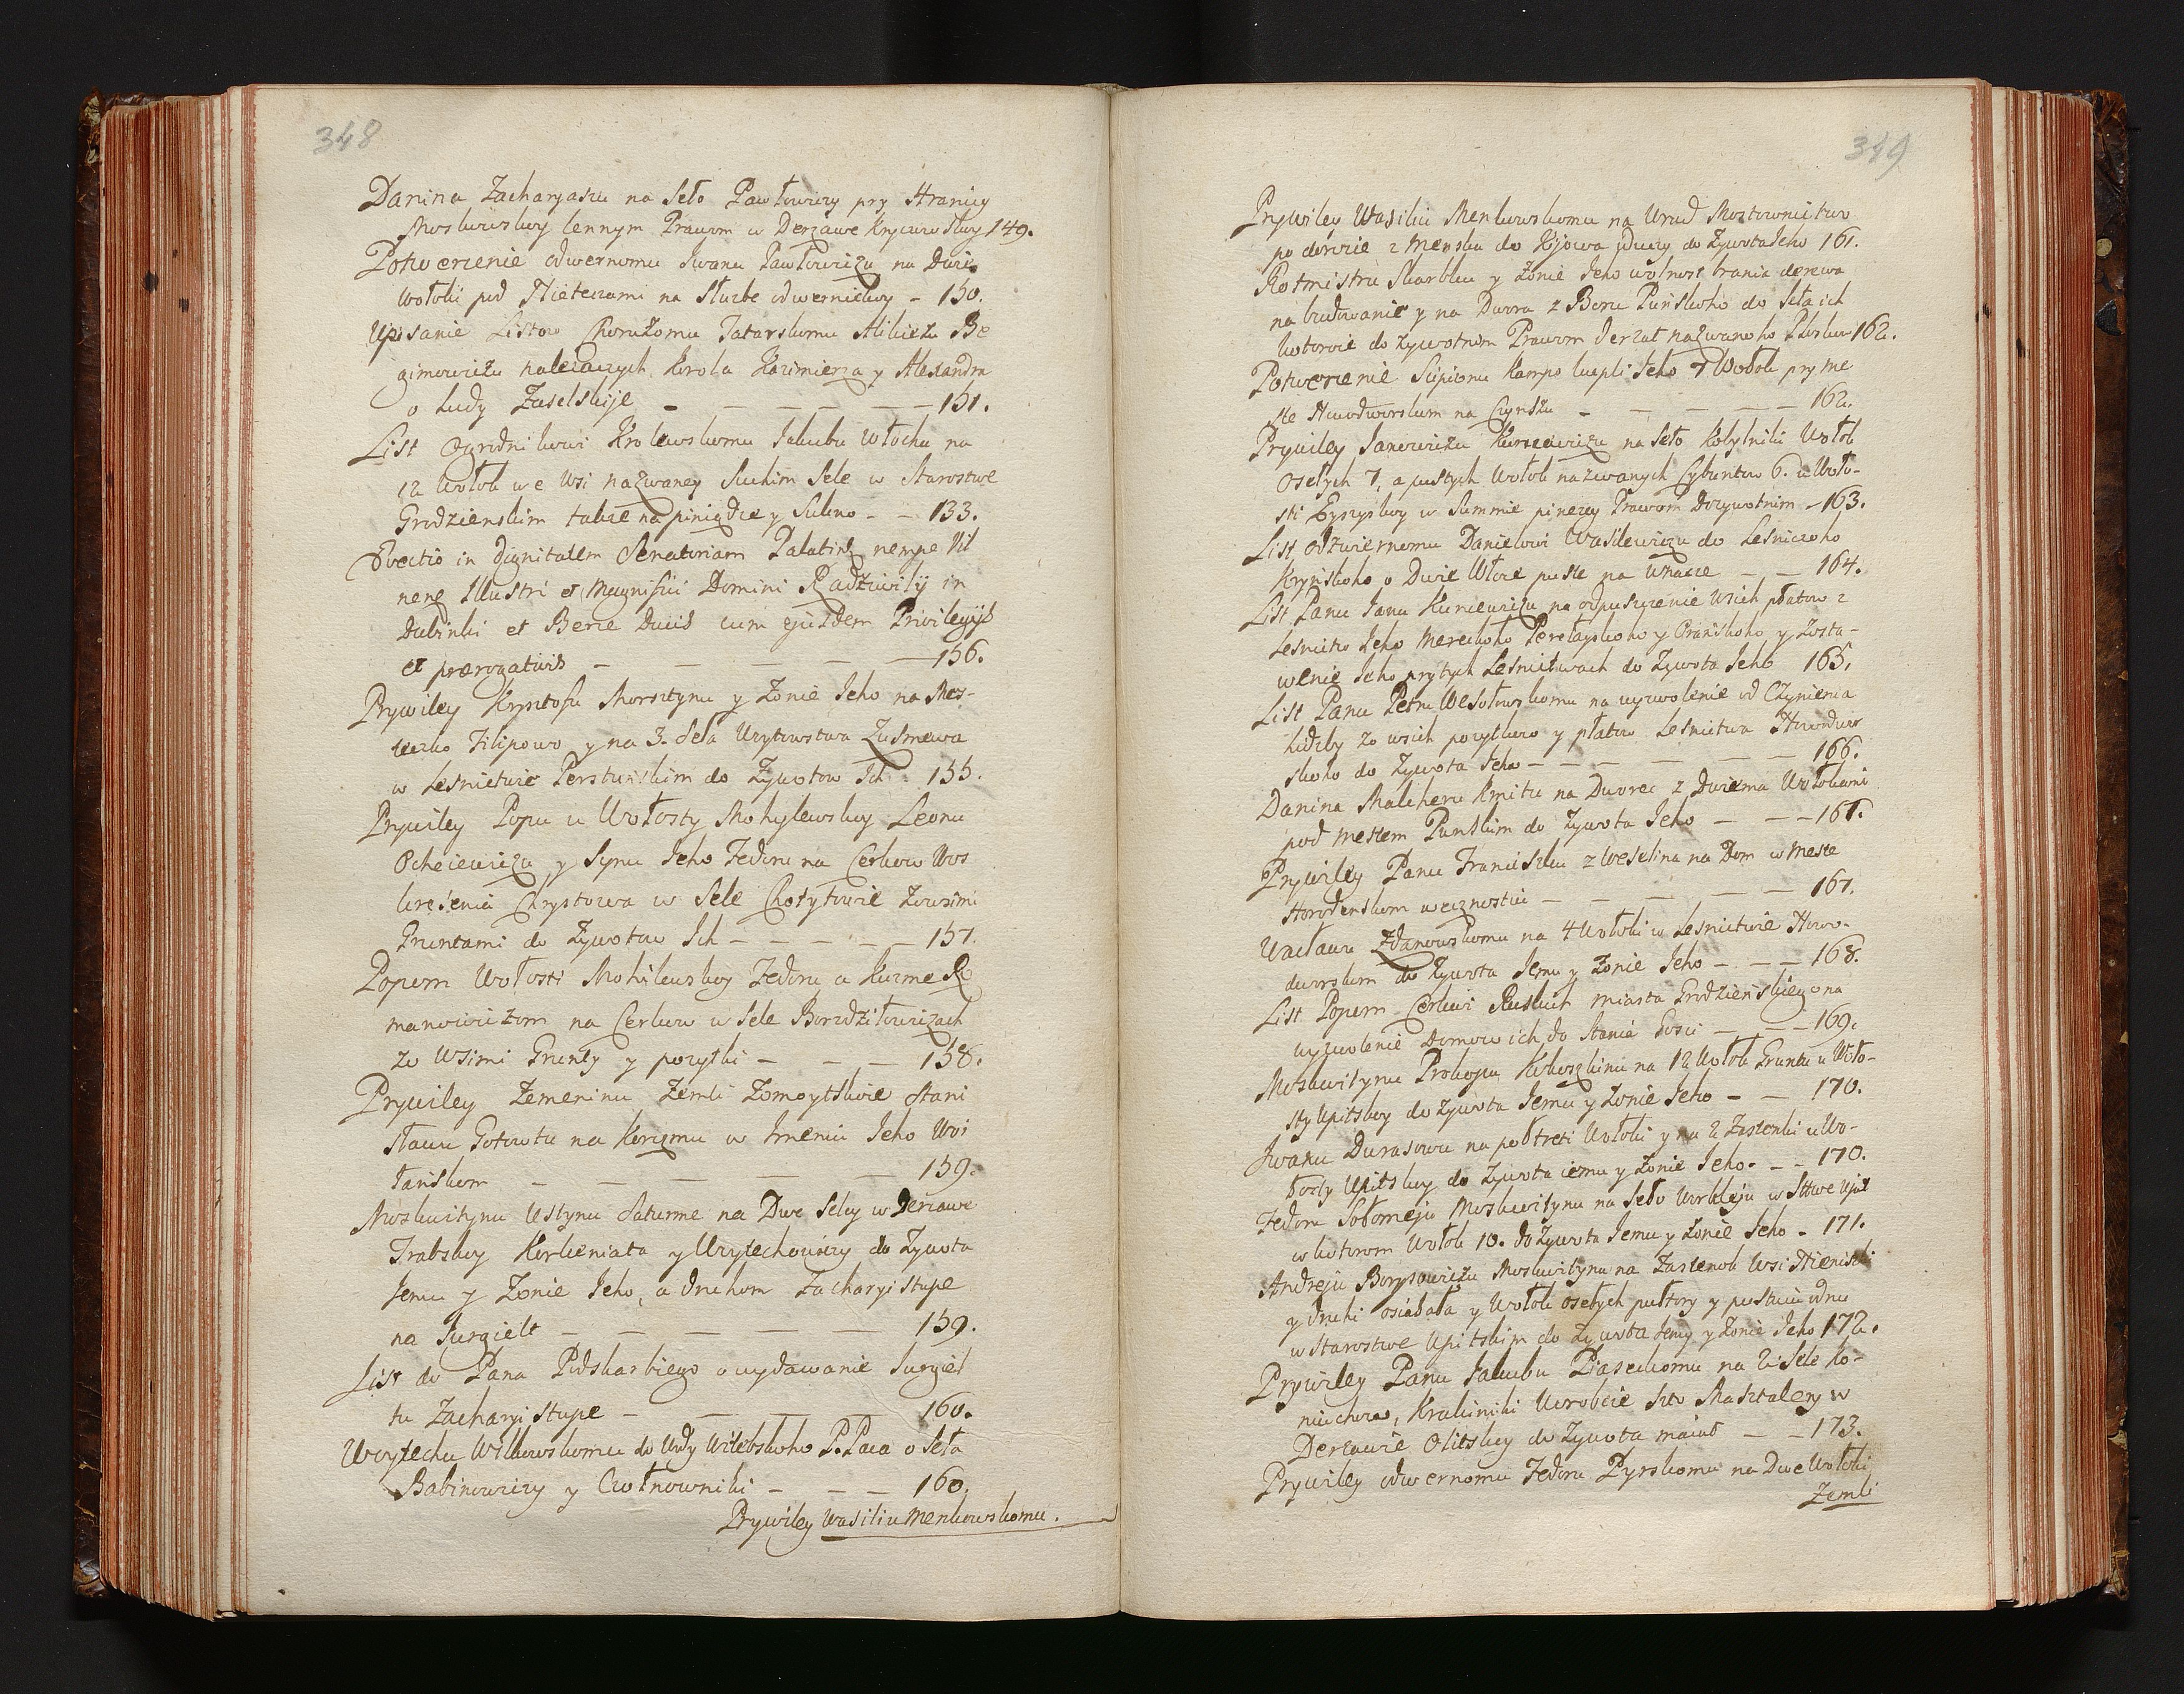 348
Danina Zacharyaszu na Seło Pawłowiczy pry Hranicy
Moskowskoy lennym Prawom w Derzawe Kryczowskoy 149.
Potwerzenie odwernomu Iwanu Pawłowiczu na Dwie
Wołoki pod Nieteczami na Służbe odwernickoy - 150.
Upisanie Listow Chorużomu Tatarskomu Alikieżu Be
gimowiczu należaczych Korola Kazimierza y Alexandra
o Ludy Zaselskije - - - - - 151.
List Ogrodnikowi Krolewskomu Jakubu Włochu na
12 Wołok we Wsi nazwaney Suchim Sele w Starostwe
Grodzienskim także na piniądze y Sukno - - 133.
Evectio in Dignitatem Senatoriam Palatinę nempe Vil
nenę Illustri et Magnifici Domini Radziwily in
Dubinki et Birze Ducis cum ejusdem Privilegijs
et prærogativis - - - - - 156.
Prywiley Krysztofu Morsztynu y Żonie Jeho na Mes-
teczko Filipowo y na 3. Seła Woytowstwa Zusnewa
w Lesnictwie Perstunskim do Żywotow Ich - 155.
Prywiley Popu u Wołosty Mohylewskoy Leonu
Ocheiewiczu y Synu Jeho Fedoru na Cerkow Wos
kreśenia Chrystowa w Sele Chotytowie Zowsimi
Gruntami do Żywotow Ich - - - - - 157.
Popom Wołosti Mohilewskoy Fedoru a Kuzme Ro
manowiczom na Cerkow w Sele Borzdziłowiczach
zo Wsimi Grunty y pożytki - - - 158.
Prywiley Zemeninu Zemli Żomoytskoie Stani
sławu Gotowtu na Korczmu w Imeniu Jeho Woi
łanskom - - - - - 159.
Moskwitynu Ustynu Saturme na Dwe Seley w Derzawe
Trabskoy Korkieniata y Woytechowiczy do Żywota
Jemu y Żonie Jeho, a druhom Zacharyi Stupe
na Jurgielt - - - - - 159.
List do Pana Podskarbiego o wydawanie Jurgiel
tu Zacharyi Stupe - - - - 160.
Woytechu Wilkowskomu do Wody Witebskoho P. Paca o Seła
Babinowiczy y Czołnowniki - - - 160.
Prywiley Wasiliu Menkowskomu.
349
Prywiley Wasiliu Menkowskomu na Urad Mostownictwo
po dorozie z Menska do Kijowa iduczy do Żywota Jeho 161.
Rotmistru Skarbku y Żonie Jeho wolnost brania derewa
na budowanie y na Drowa z Boru Punskoho do Sełaich
kotoroie do Żywotnom Prawom Jerzat nazwanoho Ploskow 162.
Potwerzenie Scipionu Kampo kupli Jeho 7 Wołok pry me
ste Nowodworskom na Czynszu - - - - - 162.
Prywiley Janowiczu Kurcewiczu na Seło Kobylniki Wołok
Osełych 7, a pustych Wołok nazwanych Cybuntow 6. u Woło-
sti Eyszyskoy w Summie pinezey Prawom Dożywotnim - 163.
List Odzwiernomu Danielowi Wasilewiczu do Lesniczoho
Krynskoho o Dwie Włoce puste na Unacze - - 164.
List Panu Janu Kuncewiczu na odpuszczenie Wsich płatow z
Lesnictw Jeho Mereckoho Perełayskoho y Oranskoho y Zosta-
wenie Jeho prytych Lesnictwach do Żywota Jeho 165.
List Panu Petru Wesołowskomu na wyzwolenie od Czynienia
Liczby zo wsich pożytkow y płatow Lesnictwa Nowodwor
skoho do Żywota Jeho - - - - - 166.
Danina Malcheru Kmitu na Dworec z Dwiema Wołokami
pod Mestem Punskim do Żywota Jeho - - - 167.
Prywiley Panu Franciszku z Weselina na Dom w Meste
Horodenskom wecznostiu - - - - - 167.
Wacławu Zdanowskomu na 4 Wołoki w Lesnictwie Nowo-
dworskom do Żywota Jemu y Żonie Jeho - - - 168.
List Popom Cerkwi Ruskich miasta Grodzienskiego na
wyzwolenie Domow ich do Stania Gosci - - - 169.
Moskwitynu Prokopu Kokoszkinu na 12 Wołok Gruntu u Woło-
sty Upitskoy do Żywota Jemu y Żonie Jeho - - 170.
Iwanu Durasowu na połtreti Wołoki y na 2 Zastenki u Wo-
łosty Upitskoy do Żywota iemu y Żonie Jeho. - - 170.
Fedoru Sołomeju Moskwitynu na Seło Workleju w Sttwe Upit
w kotorom Wołok 10. do Żywota Jemu y Żonie Jeho - 171.
Andreju Borysowiczu Moskwitynu na Zastenok Wsi Nieniski
y druhi osiabała y Wołok osełych półtory y pustuiu odnu
w Starostwe Upitskim do Żywota Jemu y Żonie Jeho 172.
Prywiley Panu Jakubu Piaseckomu na 2. Sele Ko-
niuchow, Krakiniki Worobcie szto Masztalery w
Derzawie Olitskoy do Żywota maiut - - 173.
Prywiley odwernomu Fedoru Pyrskomu na Dwe Wołoki
Zemli